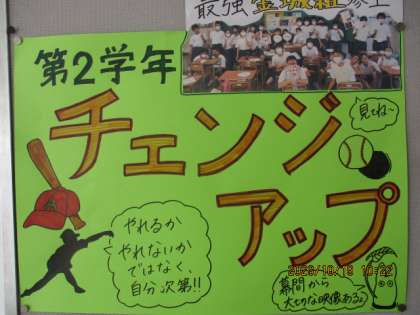 最強
第2学年
チェンジ
アップ
見てね〜
やれるか
やれないか
ではなく、
自分次第!!
幕間から
大切な映像あるよ